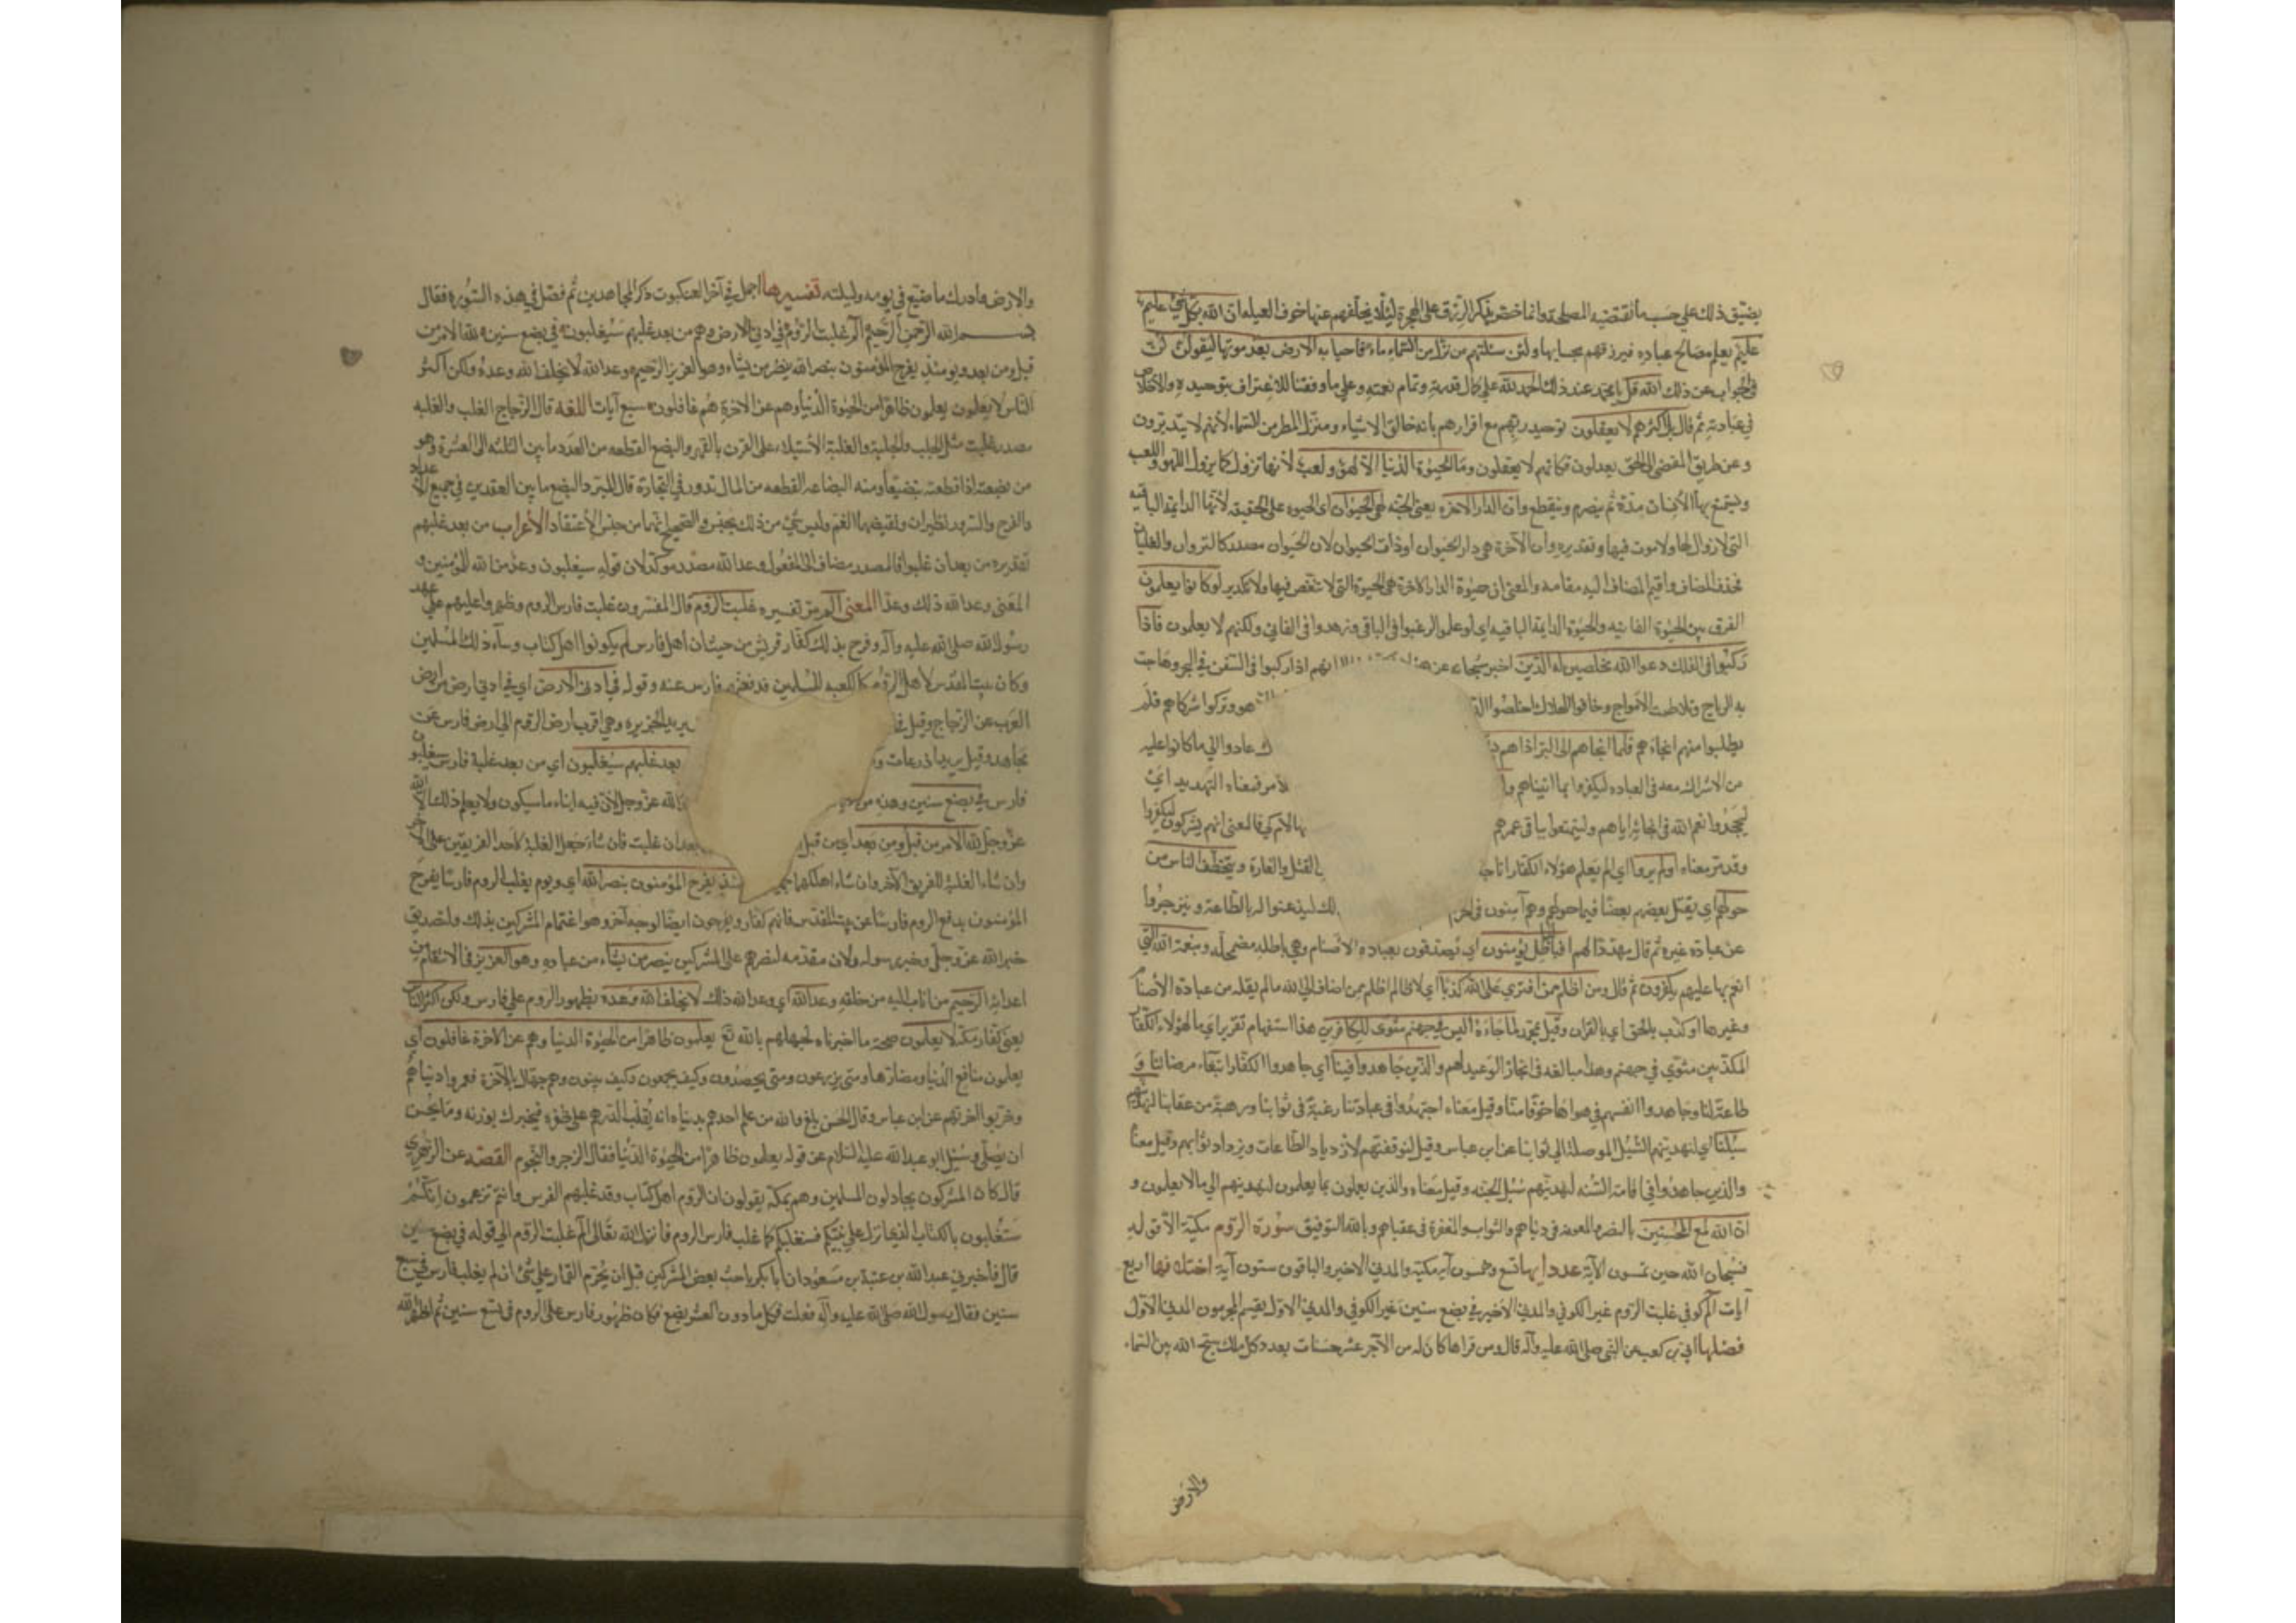 يضيّق ذلك علي حسب ما تقتضيه المصلحة وانما خصّ بذكر الرزق على الهجرة لئلا يخلفهم عنها خوف العيلة ان الله بكل شيء عليم
عليم يعلم مصالح عباده فيرزقهم بحسابها ولئن سئلتهم من نزّل من السماء ماء فاحيا به الارض بعد موتها ليقولن
في الجواب عن ذلك الله قل يا محمد عند ذلك الحمد لله علي كمال قدرته وتمام نعمته وعلي ما وفقنا للاعتراف بتوحيده والاخلاص
في عبادته ثم قال بل اكثرهم لا يعقلون توحيد ربهم مع اقرارهم بانه خالق الاشياء ومنزل المطر من السماء لأنهم لا يتدبرون
وعن طريق المفضي الى الحق يعدلون فكانهم لا يعقلون وما الحيوة الدنيا الا لهو ولعب لأنها تزول كما يزول اللهو واللعب
ويتمتع بها الانسان مدّة ثم ينصرم وينقطع وان الدار الاخرة يعني الجنة لهي الحيوان اي الحيوة على الحقيقة لأنها الدايمة الباقية
التي لا زوال لها ولا موت فيها وتقديره وان الآخرة هي دار الحيوان او ذات الحيوان لان الحيوان مصدر كالنزوان والغليان
فحذف المضاف واقيم المضاف اليه مقامه والمعنى ان حيوة الدار الاخرة هي الحيوة التي لا تنغص فيها ولا تكدير لو كانوا يعلمون
الفرق بين الحيوة الفانية والحيوة الدايمة الباقية اي لو علموا لرغبوا في الباقي وزهدوا في الفاني ولكنهم لا يعلمون فاذا
ركبوا في الفلك دعوا الله مخلصين له الدين اخبر سبحانه عن انهم اذا ركبوا في السفن في البحر وهاجت
به الرياح وتلاطمت الامواج وخافوا الهلاك اخلصوا وتركوا شركاهم فلم
يطلبوا منهم انجاءهم فلما انجاهم الى البر اذا هم عادوا الي ما كانوا عليه
من الاشراك معه في العبادة ليكفروا بما اتيناهم الامر فمعناه التهديد اي
ليجحدوا نعم الله في انجائه اياهم وليتمتعوا بباقي عمرهم فالمعنى انهم يشركون ليكفروا
وقد مر معناه اولم يروا اي الم يعلم هؤلاء الكفار انا القتل والغارة ويتخطف الناس من
حولهم اي يقتل بعضهم بعضا فيما حولهم وهم آمنون في ليذعنوا له بالطاعة وينزجروا
عن عبادة غيره ثم قال مهددا لهم افبالباطل يؤمنون اي يصدقون بعبادة الاصنام وهي باطلة مضمحلة وبنعمة الله التي
انعم بها عليهم يكفرون ثم قال ومن اظلم ممن افتري على الله كذبا اي لا ظالم اظلم ممن اضاف الي الله ما لم يقله من عبادة الأصنام
وغيرها او كذب بالحق اي بالقران وقيل بمحمد لما جاءه اليس في جهنم مثوى للكافرين هذا استفهام تقرير اي ما لهؤلاء الكفار
المكذبين مثوي في جهنم وهذا مبالغة في انجاز الوعيد لهم والذين جاهدوا فينا اي جاهدوا الكفار ابتغاء مرضاتنا و
طاعة لنا وجاهدوا انفسهم في هواها خوفا منا وقيل معناه اجتهدوا في عبادتنا رغبة في ثوابنا ورهبة من عقابنا لنهدينهم
سبلنا اي لنهدينهم السبل الموصلة الي ثوابنا عن ابن عباس وقيل لنوفقنهم لازدياد الطاعات ويزداد ثوابهم وقيل معناه
والذين جاهدوا في اقامة السنة لنهدينهم سبل الجنة وقيل معناه والذين يعملون بما يعلمون لنهدينهم الي ما لا يعلمون و
ان الله لمع المحسنين بالنصر والمعونة في دنياهم والثواب والمغفرة في عقباهم وبالله التوفيق سورة الروم مكية الا قوله
فسبحان الله حين تمسون الآية عدد ايها تسع وخمسون آية مكي والمدني الاخير والباقون ستون آية اختلافها اربع
آيات الم كوفي غلبت الروم غير الكوفي والمدني الاخير في بضع سنين غير الكوفي والمدني الاول يقسم المجرمون المدني الاول
فضلها ابي بن كعب عن النبي صلى الله عليه وآله قال ومن قراها كان له من الاجر عشر حسنات بعدد كل ملك سبح الله بين السماء
والارض
والارض وادرك ما ضيع في يومه وليلته تفسيرها اجمل في آخر العنكبوت ذكر المجاهدين ثم فصّل في هذه السورة فقال
بسم الله الرحمن الرحيم الم غلبت الروم في ادني الارض وهم من بعد غلبهم سيغلبون في بضع سنين لله الامر من
قبل ومن بعد ويومئذ يفرح المؤمنون بنصر الله ينصر من يشاء وهو العزيز الرحيم وعد الله لا يخلف الله وعده ولكن اكثر
الناس لا يعلمون يعلمون ظاهرا من الحيوة الدنيا وهم عن الآخرة هم غافلون سبع آيات اللغة قال الزجاج الغلب والغلبة
مصدر غلبت مثل الجلب والجلبة والغلبة الأستيلاء على القرن بالقهر والبضع القطعة من العدد ما بين الثلثة الى العشرة وهو
من بضعته اذا قطعته تبضيعا ومنه البضاعة القطعة من المال تدور في التجارة قال المبرد البضع ما بين العقدين في جميع الاعداد
والفرح والسرور نظيران ونقيضهما الغم وليس شيء من ذلك بجنس والصحيح انهما من جنس الأعتقاد الأعراب من بعد غلبهم
تقديره من بعد ان غلبوا فالمصدر مضاف الى المفعول وعد الله مصدر مؤكد لان قوله سيغلبون وعد من الله للمؤمنين و
المعني وعد الله ذلك وعدا المعنى الم مر تفسيره غلبت الروم قال المفسرون غلبت فارس الروم وظهروا عليهم علي عهد
رسول الله صلى الله عليه وآله وفرح بذلك كفار قريش من حيث ان اهل فارس لم يكونوا اهل كتاب وساء ذلك المسلمين
وكان بيت المقدس لأهل الروم كالكعبة للمسلمين فدفعتهم فارس عنه وقوله في ادنى الارض اي في ادني ارض من ارض
العرب عن الزجاج وقيل يريد الجزيرة وهي اقرب ارض الروم الي ارض فارس عن
مجاهد وقيل يريد اذرعات بعد غلبهم سيغلبون اي من بعد غلبة فارس سيغلبون
فارس في بضع سنين وهذه من الله عز وجل لأن فيه انباء ما سيكون ولا يعلم ذلك الا الله
عز وجل لله الامر من قبل ومن بعد اي من قبل بعد ان غلبت فان شاء جعل الغلبة لأحد الفريقين على الاخر
وان شاء الغلبة للفريق الآخر وان شاء اهلكهما يفرح المؤمنون بنصر الله اي ويوم يغلب الروم فارسا يفرح
المؤمنون بدفع الروم فارسا عن بيت المقدس فانهم كفار ويفرحون ايضا لوجه آخر وهو اغتمام المشركين بذلك ولتصديق
خبر الله عز وجل وخبر رسوله ولان مقدمه لنصرهم على المشركين ينصر من يشاء من عباده وهو العزيز في الانتقام من
اعدائه الرحيم من اناب اليه من خلقه وعد الله اي وعد الله ذلك لا يخلف الله وعده بظهور الروم علي فارس ولكن اكثر الناس
يعني كفار مكة لا يعلمون صحة ما اخبرناه لجهلهم بالله تع يعلمون ظاهرا من الحيوة الدنيا وهم عن الاخرة غافلون اي
يعلمون منافع الدنيا ومضارها ومتى يزرعون ومتي يحصدون وكيف يجمعون وكيف يبنون وهم جهال بالآخرة فعمروا دنياهم
وخربوا اخرتهم عن ابن عباس وقال الحسن بلغ والله من علم احدهم بدنياه انه يقلب الدرهم على ظفره فيخبرك بوزنه وما يحسن
ان يصلي وسئل ابو عبدالله عليه السلام عن قوله يعلمون ظاهرا من الحيوة الدنيا فقال الزجر والنجوم القصة عن الزهري
قال كان المشركون يجادلون المسلمين وهم بمكة يقولون ان الروم اهل كتاب وقد غلبهم الفرس وانتم تزعمون انكم
ستغلبون بالكتاب الذي انزل علي نبيكم فسنغلبكم كما غلب فارس الروم فانزل الله تعالى الم غلبت الروم الي قوله في بضع سنين
قال فاخبرني عبدالله بن عتبة بن مسعود ان ابا بكر ناحب بعض المشركين قبل ان يحرم القمار علي شئ ان لم يغلب فارس في سبع
سنين فقال رسول الله صلى الله عليه وآله لم فعلت فكل ما دون العشر بضع فكان ظهور فارس على الروم في تسع سنين ثم اظهر الله